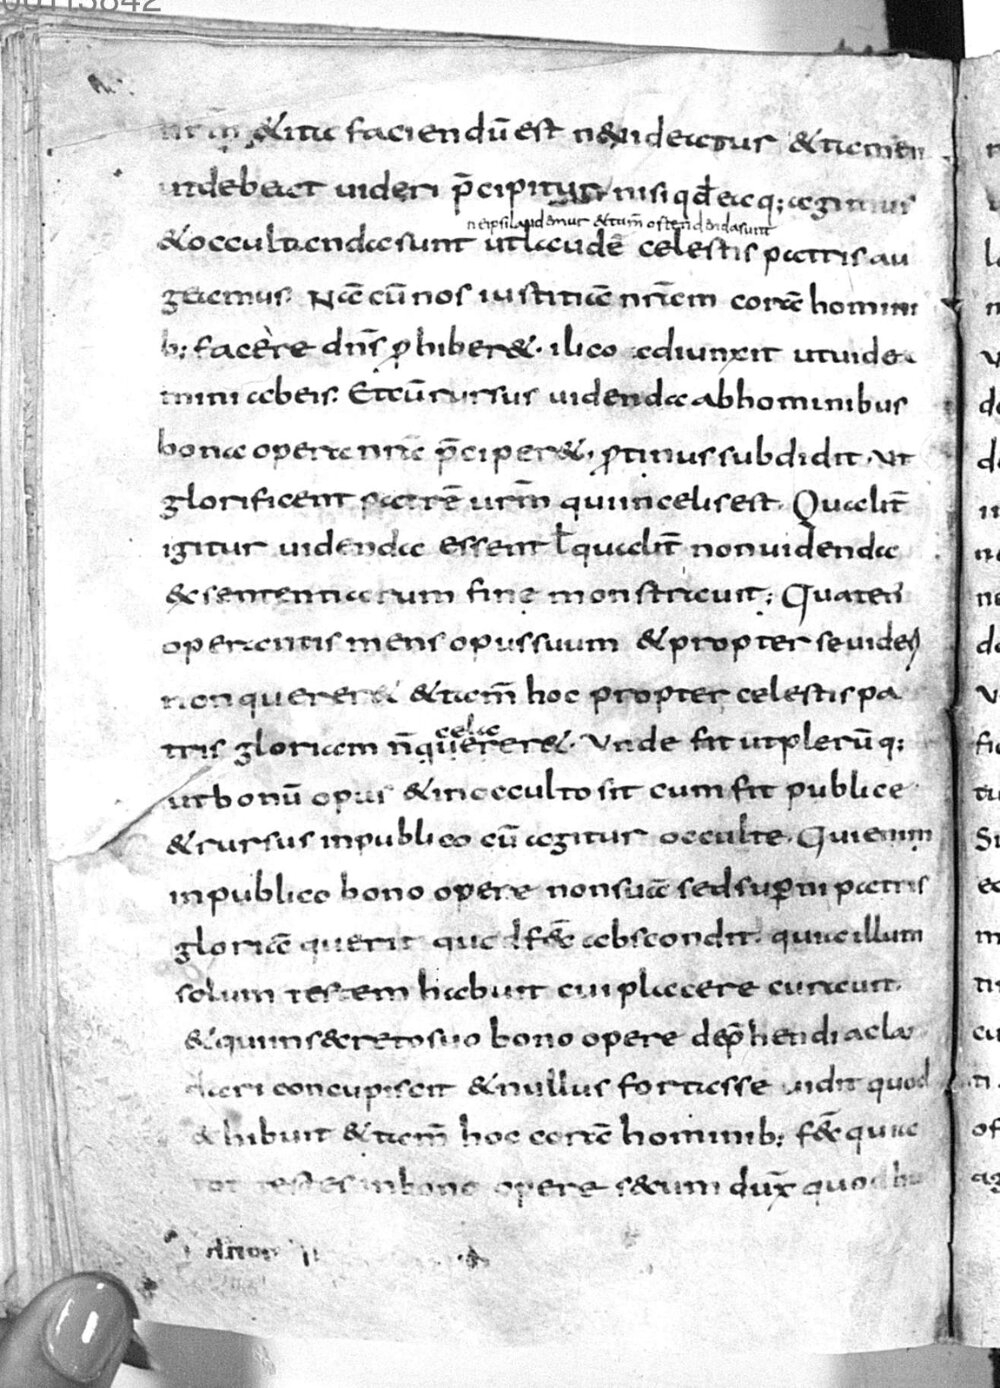 nr̄m &ita faciendū est n&videatur &tamen
ut debeat uideri p̄cipitur nisi qđ eaq; agimus
ne ipsi laudemur &tam̄ ostendenda sunt
&occultanda sunt ut laudē celestis patris au
geamus. Nā cū nos iustitiā nr̄am corā homini
b; facere dn̄s ꝓhiber&. ilico adiunxit ut uidea
mini ab eis. Et cū rursus uidenda ab hominibus
bona opera nr̄a p̄ciper&. ꝓtinus subdidit. Ut
glorificent patrē ur̄m qui in celis est. Qualit̄
igitur uidenda essent ł qualit̄ non uidenda
&sententiarum fine monstrauit; Quaten
operantis mens opus suum &propter se uideri
non querer& &tam̄ hoc propter celestis pa
celae
tris gloriam n̄ querer&. Unde fit ut plerūq;
ut bonū opus &in occulto sit cum fit publice
&rursus in publico cū agitur occulte. Qui enim
in publico bono opere non suā sed sup̄ni patris
gloriā querit quod fec̄ abscondit. quia illum
solum testem habuit cui placere curauit.
&qui in secreto suo bono opere dep̄hendi ac lau
dari concupiscit &nullus fortasse uidit quod
&hibuit &tam̄ hoc corā hominib; fec̄ quia
tot testes in bono opere secum dux̄ quod hu